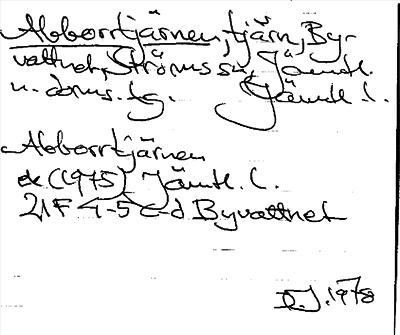 Abborrtjärnen, tjärn, By-
vattnet, Ströms sn, Jämtl.
n. doms. lg. Jämtl. l.
Abborrtjärnen
ek (1975) Jämtl. l.
21F 4-5 c-d Byvattnet
D.J. 1978